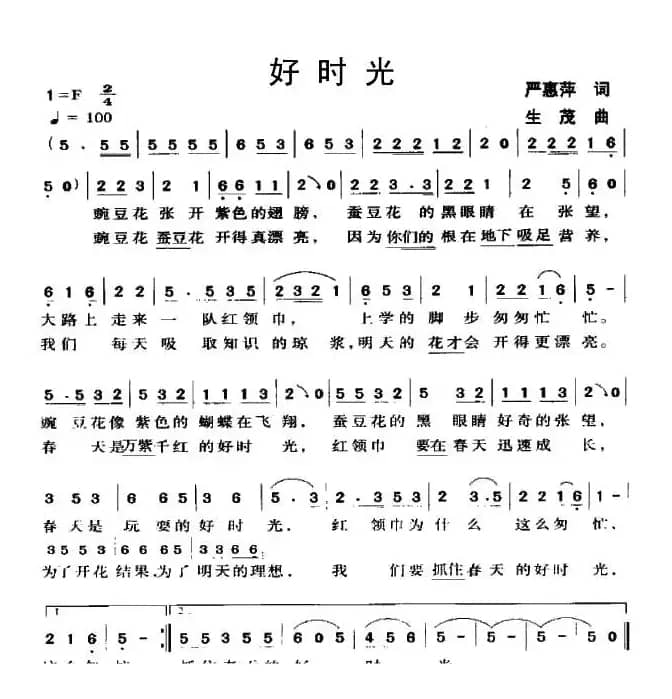 好时光
1=F 2/4 严惠萍 词
♩= 100 生茂 曲
(5. 55 | 5555 | 653 | 653 | 22212 | 20 | 22216 |
50) | 223 | 21 | 6611 | 2↘0 | 223.3 | 2111 | 25 | 60 |
豌豆花 张 开 紫色的翅 膀, 蚕豆花 的 黑眼睛 在 张 望,
豌豆花 蚕豆花 开得真漂 亮, 因为你们的 根在地下 吸足 营 养,
616 | 22 | 5.535 | 2321 | 653 | 21 | 2216 | 5- |
大路上 走来 一 队红领 巾, 上学的 脚 步 匆匆忙 忙。
我们 每天 吸 取知识的 琼 浆, 明天的 花才会 开得更漂 亮。
5.532 | 5532 | 1113 | 2↘0 | 5532 | 5 32 | 1113 | 2↘0 |
豌 豆花像 紫色的 蝴蝶在飞 翔, 蚕豆花的 黑 眼睛 好奇的张 望,
春 天是万紫千红 的好时 光, 红领巾 要在春天 迅速成 长,
353 | 6 65 | 6535 | 5.3 | 2.353 | 2.2 | 2 3.5 | 2216 | 1- |
春 天是 玩 耍的好 时 光, 红 领巾为 什 么 这么匆 忙、
3553 | 6665 | 3366 |
为了开花 结果,为了 明天的理想, 我 们要 抓住春天 的好时 光,
1. 2.
216 | 5- :| 55355 | 605 | 456 | 5- | 5- | 50 ||